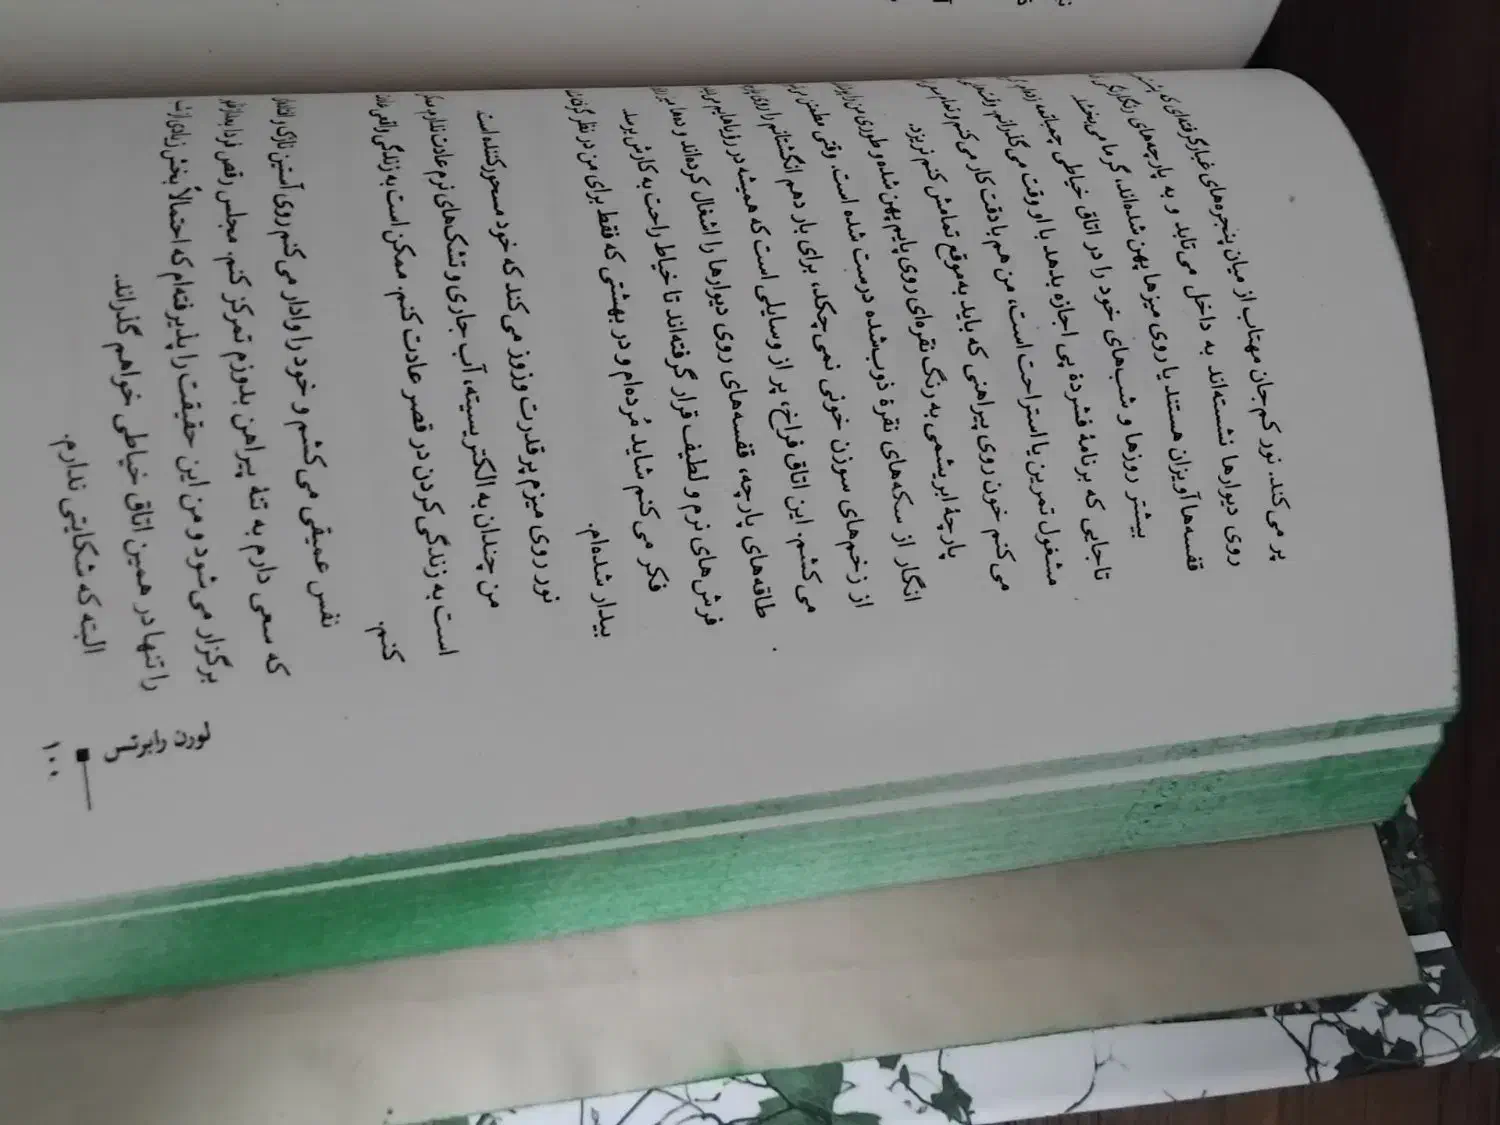 پر می‌کند. نور کم‌جان مهتاب از میان پنجره‌های غبارگرفته‌ای که
روی دیوارها نشسته‌اند به داخل می‌تابد و به پارچه‌های رنگارنگی
قفسه‌ها آویزان هستند یا روی میزها پهن شده‌اند، گرما می‌بخشد.
بیشتر روزها و شب‌های خود را در اتاق خیاطی
تا جایی که برنامهٔ فشردهٔ پی اجازه بدهد با او وقت می‌گذرانم
مشغول تمرین یا استراحت است، من هم با دقت کار می‌کنم و تمام
می‌کنم خون روی پیراهنی که باید به‌موقع تمامش کنم نریزد.
پارچهٔ ابریشمی به رنگ نقره‌ای روی پایم پهن شده و طوری
انگار از سکه‌های نقرهٔ ذوب‌شده درست شده است. وقتی مطمئن
از زخم‌های سوزن خونی نمی‌چکد، برای بار دهم انگشتانم را روی
می‌کشم. این اتاق فراخ، پر از وسایلی است که همیشه در رؤیاهایم
طاقه‌های پارچه، قفسه‌های روی دیوارها را اشغال کرده‌اند و
فرش‌های نرم و لطیف قرار گرفته‌اند تا خیاط راحت به کارش برسد.
فکر می‌کنم شاید مُرده‌ام و در بهشتی که فقط برای من در نظر گرفته
بیدار شده‌ام.
نور روی میزم پر قدرت وزوز می‌کند که خود مسحورکننده است
من چندان به الکتریسیته، آب جاری و تشک‌های نرم عادت ندارم
است به زندگی کردن در قصر عادت کنم. ممکن است به زندگی واقعی
کنم.
نفس عمیقی می‌کشم و خود را وادار می‌کنم روی آستین نازک و
که سعی دارم به تنهٔ پیراهن بدوزم تمرکز کنم. مجلس رقص فردا
برگزار می‌شود و من این حقیقت را پذیرفته‌ام که احتمالاً بخش زیادی از
را تنها در همین اتاق خیاطی خواهم گذراند.
البته که شکایتی ندارم.
لورن رابرتس
۱۰۰